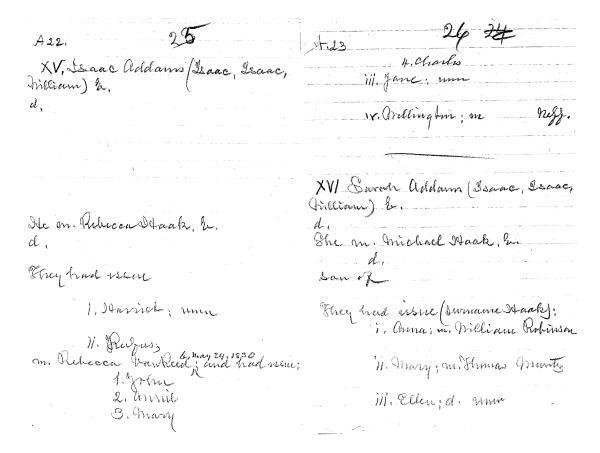 A 22.
25
XV. Isaac Addams (Isaac, Isaac,
William) b.
d.
He m. Rebecca Haak, b.
d.
They had issue
i. Harriet; unm
ii. Rufus;
b. May 24, 1830
m. Rebecca VanReed; and had issue;
1. John
2. Annie
3. Mary
A. 23
26 24
4. Charles
iii. Jane; unm
iv. Wellington; m Neff.
XVI Sarah Addams (Isaac, Isaac,
William) b.
d.
She m. Michael Haak, b.
d.
son of
They had issue (surname Haak):
i. Anna; m. William Robinson
ii. Mary; m. Thomas
iii. Ellen; d. unm